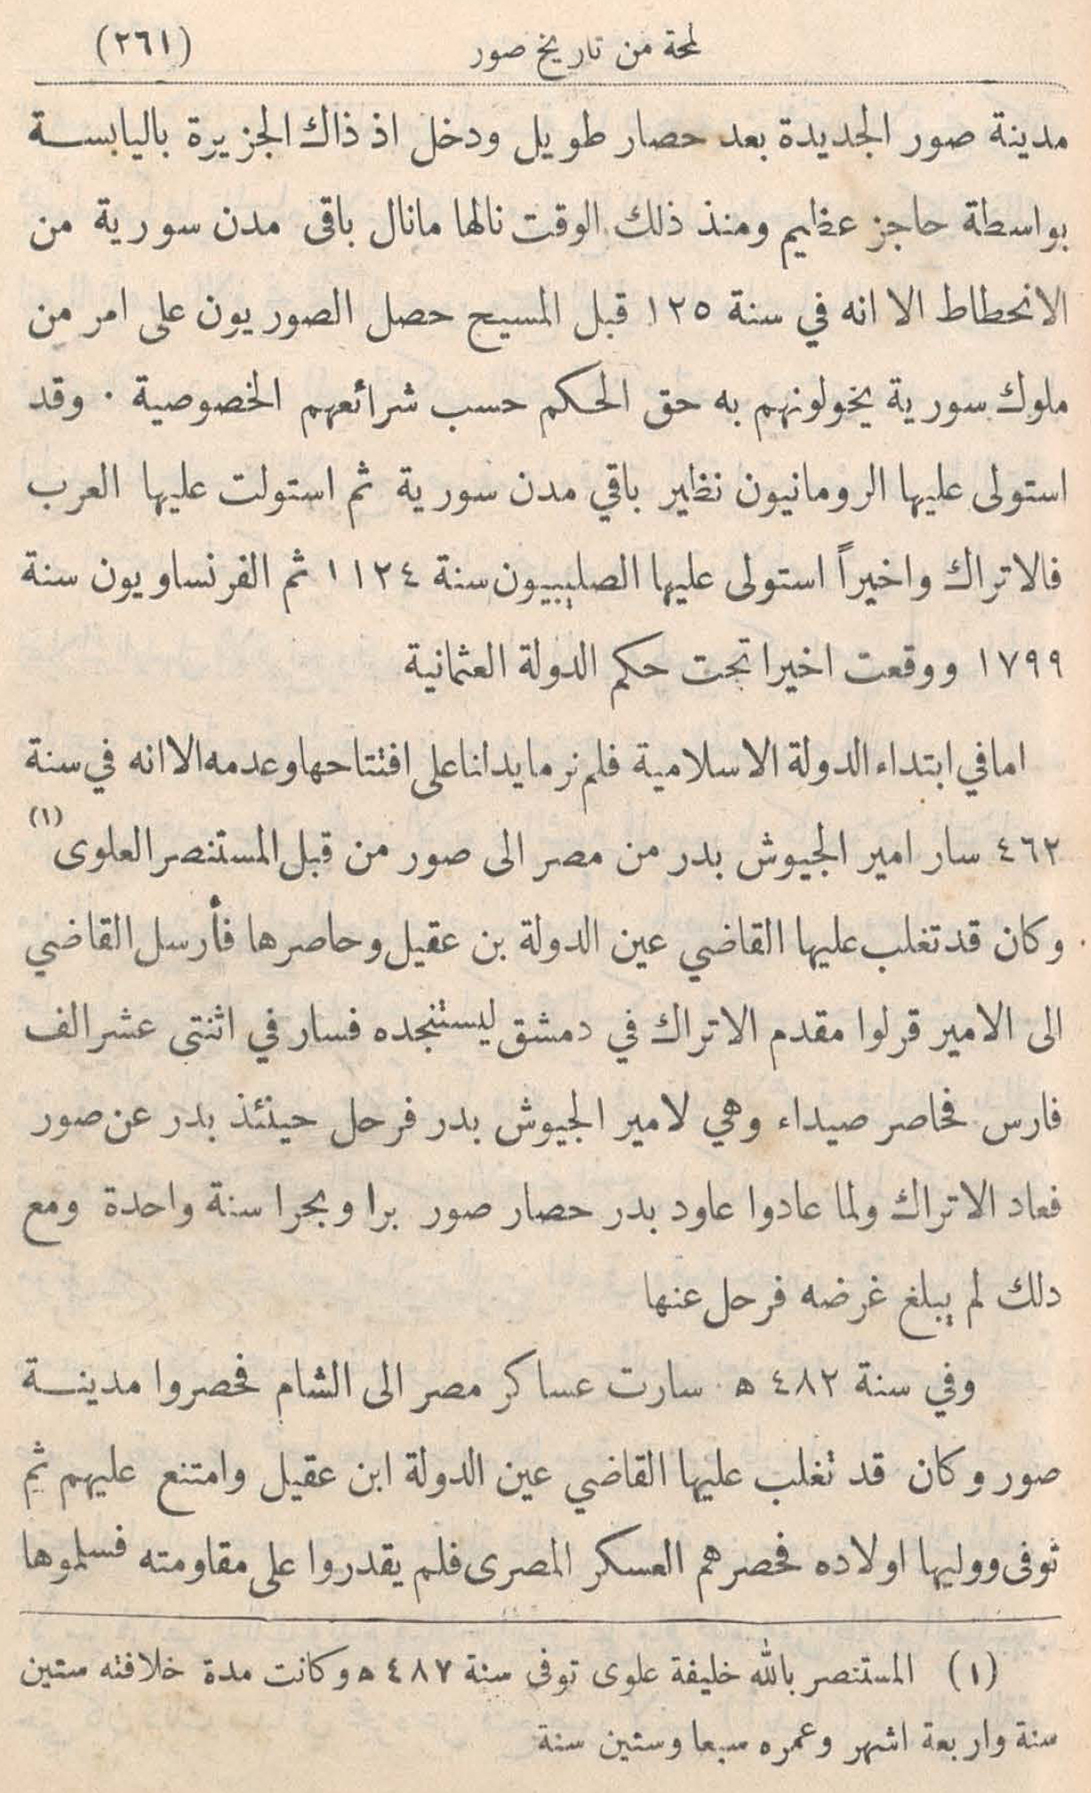 لمحة من تاريخ صور (٢٦١)
مدينة صور الجديدة بعد حصار طويل ودخل اذ ذاك الجزيرة باليابسة
بواسطة حاجز عظيم ومنذ ذلك الوقت نالها مانال باقى مدن سورية من
الانحطاط الا انه في سنة ١٢٥ قبل المسيح حصل الصوريون على امر من
ملوك سورية يخولونهم به حق الحكم حسب شرائعهم الخصوصية . وقد
استولى عليها الرومانيون نظير باقي مدن سورية ثم استولت عليها العرب
فالاتراك واخيراً استولى عليها الصليبيون سنة ١١٢٤ ثم الفرنساويون سنة
١٧٩٩ ووقعت اخيرا تحت حكم الدولة العثمانية
اما في ابتداء الدولة الاسلامية فلم نر ما يدلنا على افتتاحها وعدمه الا انه في سنة
٤٦٢ سار امير الجيوش بدر من مصر الى صور من قبل المستنصر العلوى (١)
وكان قد تغلب عليها القاضي عين الدولة بن عقيل وحاصرها فأرسل القاضي
الى الامير قرلوا مقدم الاتراك في دمشق ليستنجده فسار في اثنتى عشر الف
فارس فحاصر صيداء وهي لامير الجيوش بدر فرحل حينئذ بدر عن صور
فعاد الاتراك ولما عادوا عاود بدر حصار صور برا وبحرا سنة واحدة ومع
دلك لم يبلغ غرضه فرحل عنها
وفي سنة ٤٨٢ ه . سارت عساكر مصر الى الشام فحصروا مدينة
صور وكان قد تغلب عليها القاضي عين الدولة ابن عقيل وامتنع عليهم ثم
توفى ووليها اولاده فحصرهم العسكر المصرى فلم يقدروا على مقاومته فسلموها
(١) المستنصر بالله خليفة علوى توفى سنة ٤٨٧ ه وكانت مدة خلافته ستين
سنة واربعة اشهر وعمره سبعا وستين سنة